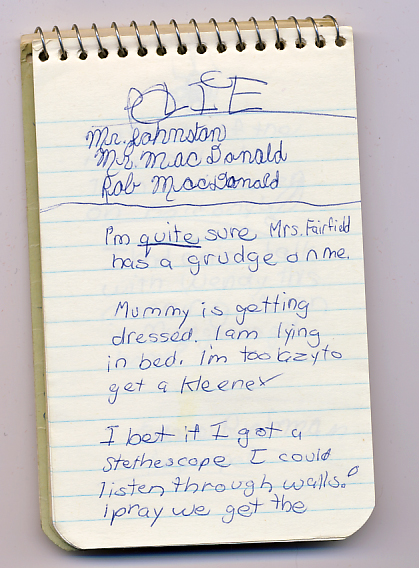 POLICE
Mr. Johnston
Mr. MacDonald
Rob MacDonald
I'm quite sure Mrs. Fairfield
has a grudge on me.
Mummy is getting
dressed. I am lying
in bed. I'm too lazy to
get a Kleenex
I bet if I got a
stethescope I could
listen through walls.
I pray we get the